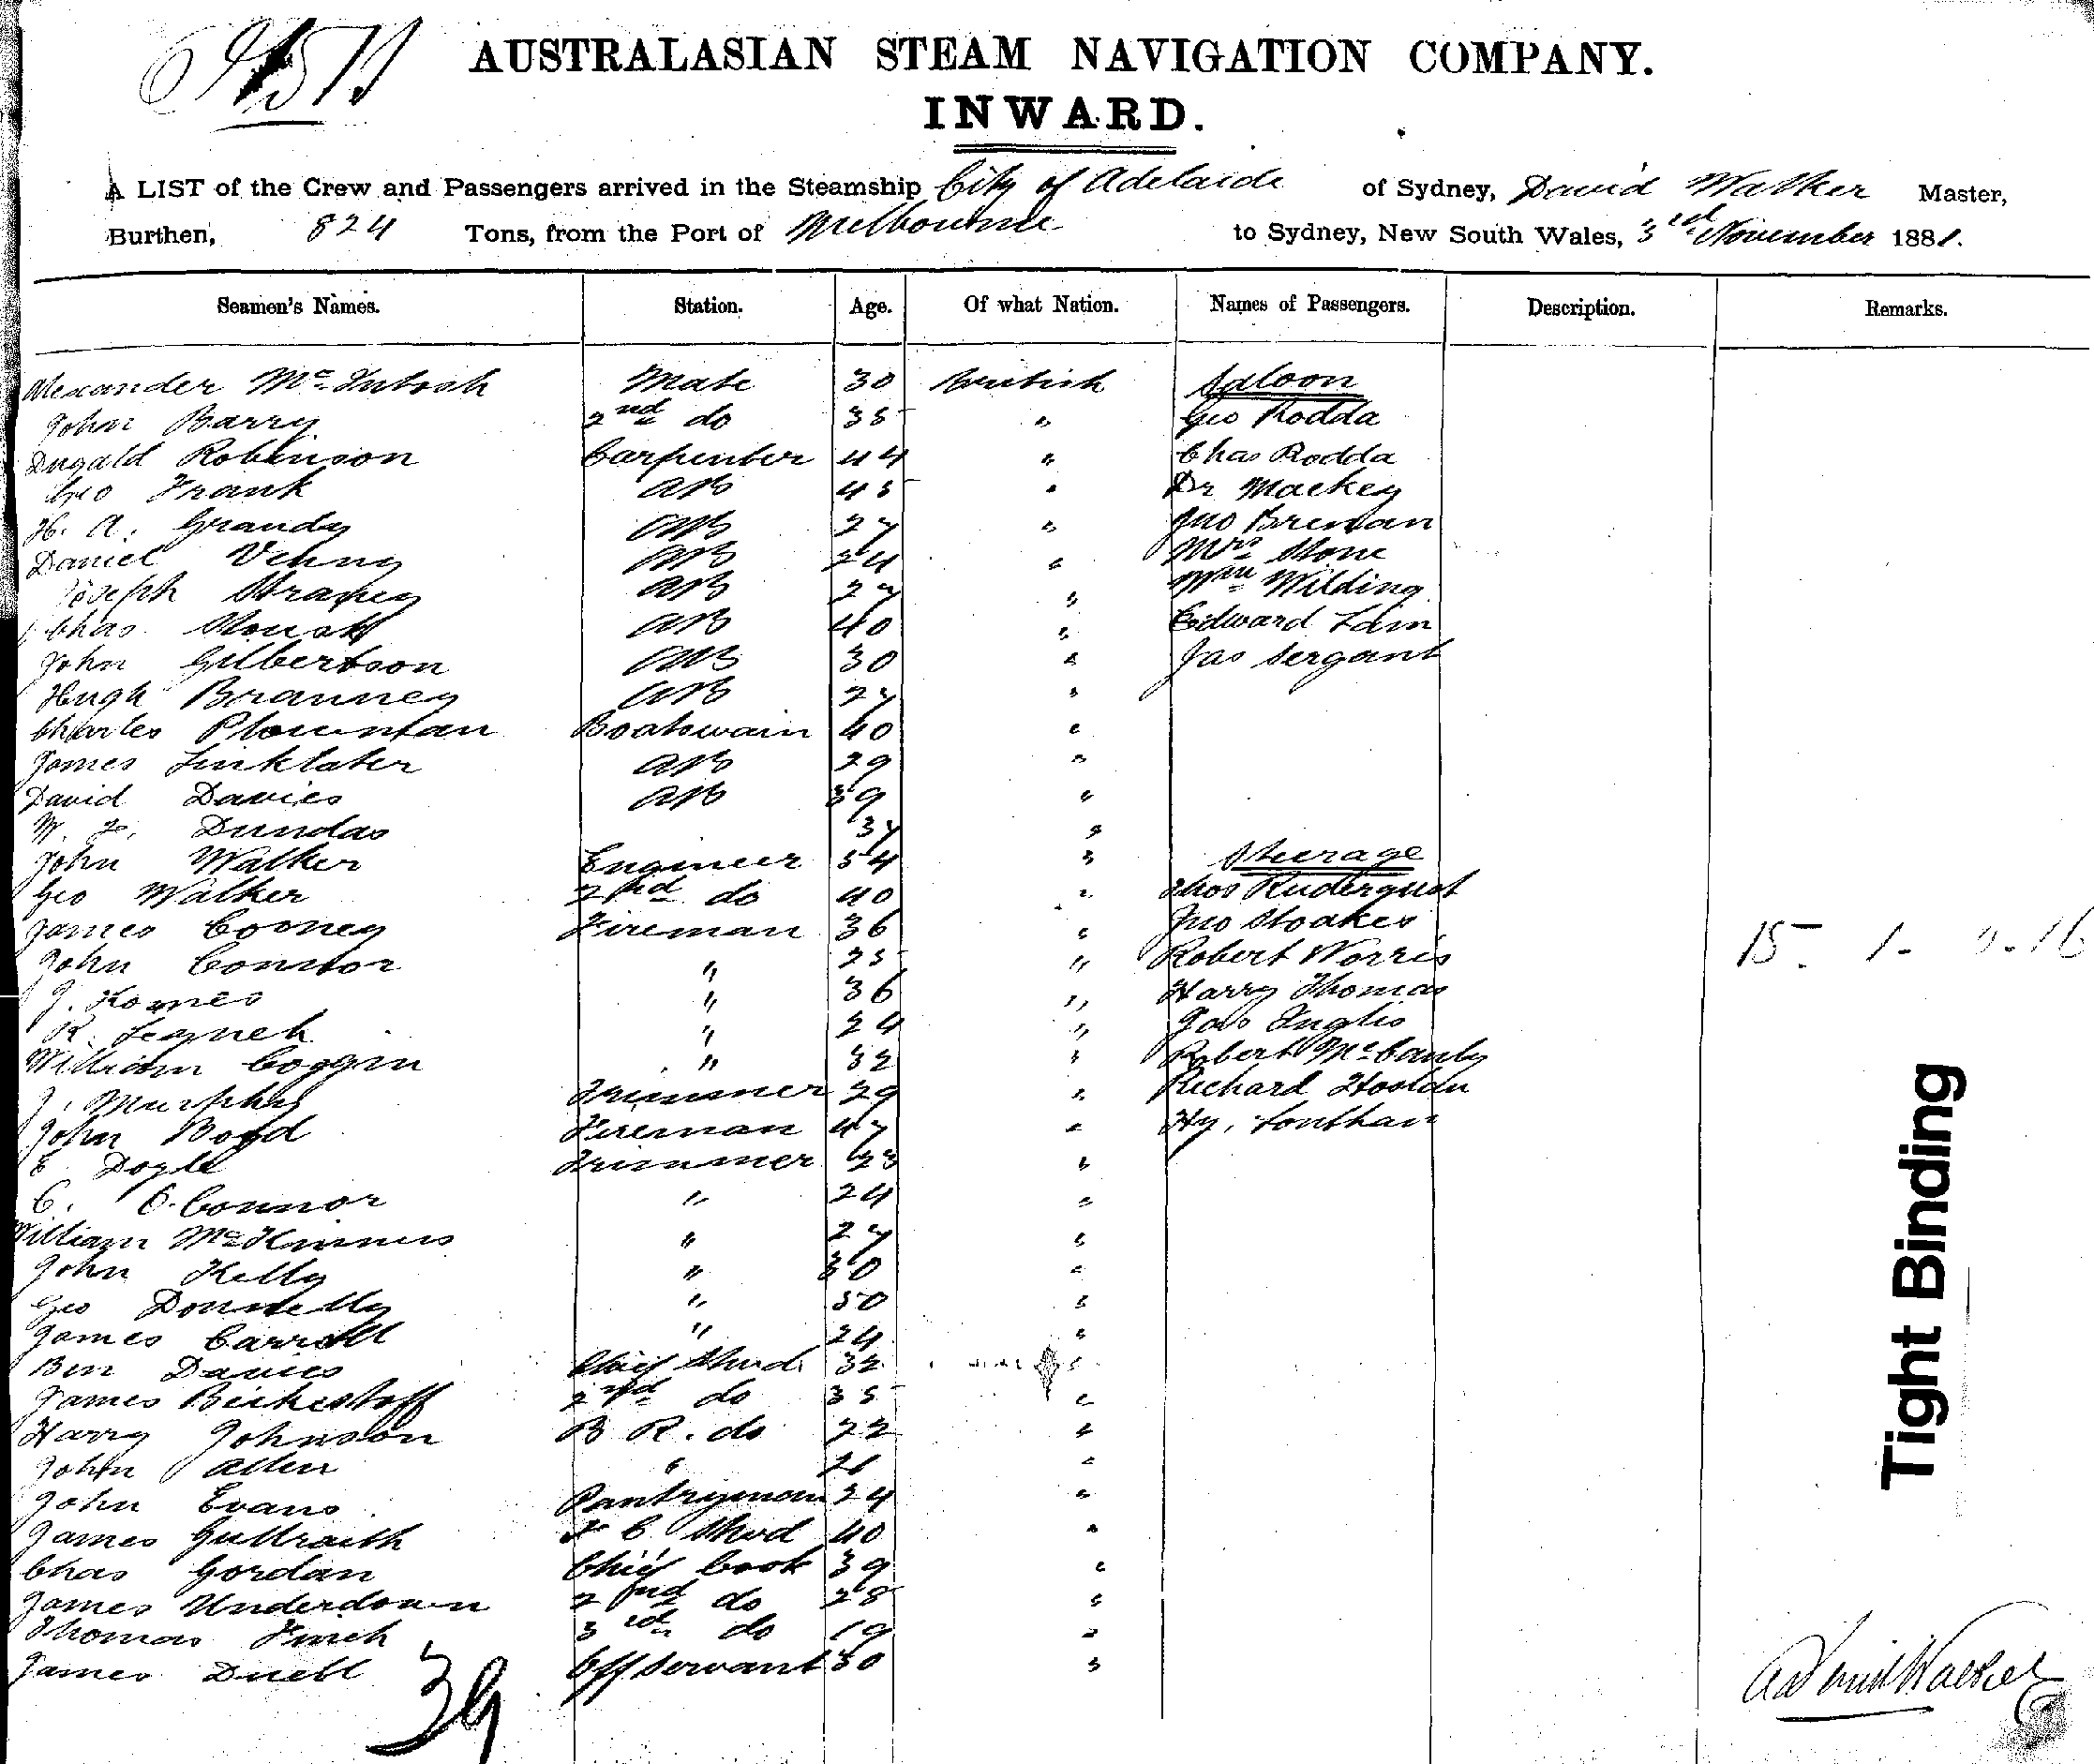 AUSTRALASIAN STEAM NAVIGATION COMPANY.
INWARD.
A LIST of the Crew and Passengers arrived in the Steamship City of Adelaide of Sydney, David Walker Master,
Burthen, 824 Tons, from the Port of Melbourne to Sydney, New South Wales, 3rd November 1881.
Seamen's Names. Station. Age. Of what Nation. Names of Passengers. Description. Remarks.
Alexander McIntosh Mate 30 British Saloon
John Barry 2nd do 35 " Geo Rodda
Dugald Robinson Carpenter 44 " Chas Rodda
Geo Frank AB 45 " Dr Mackey
H. A. Grandy AB 27 " Jno Brennan
Daniel AB 24 " Mrs Stone
Joseph AB 27 " Wilding
Chas. AB 40 " Edward
John Gilbertson AB 30 " Jas Sergant
Hugh Branney AB 27 "
Charles Plowman Boatswain 40 "
James Linklater AB 29 "
David Davies AB 39 "
W. Dundas 37 "
John Walker Engineer 54 " Steerage
Geo Walker 2nd do 40 "
James Cooney Fireman 36 " Jno Stoakes
John Connor " 25 " Robert Norris
J. " 36 " Harry Thomas
R. " 24 " Jas Inglis
William Coggin " 32 " Robert
J. Murphy Trimmer 29 " Richard
John Boyd Fireman 47 " Hy.
Doyle Trimmer 23 "
C. O.Connor " 24 "
William " 27 "
John Kelly " 30 "
Geo Donnelly " 50 "
James Carroll " 24 "
Ben Davies Chief Stwd 32 "
James 2nd do 35 "
Harry Johnson B R. do 22 "
John Allen " 21 "
John Evans Pantryman 24 "
James Stwd 40 "
Chas Gordan Chief Cook 39 "
James Underdown 2nd do 28 "
Thomas Finch 3rd do 19 "
James Duell Off servant 30 "
39
15 - 1 -
Tight Binding
David Walker